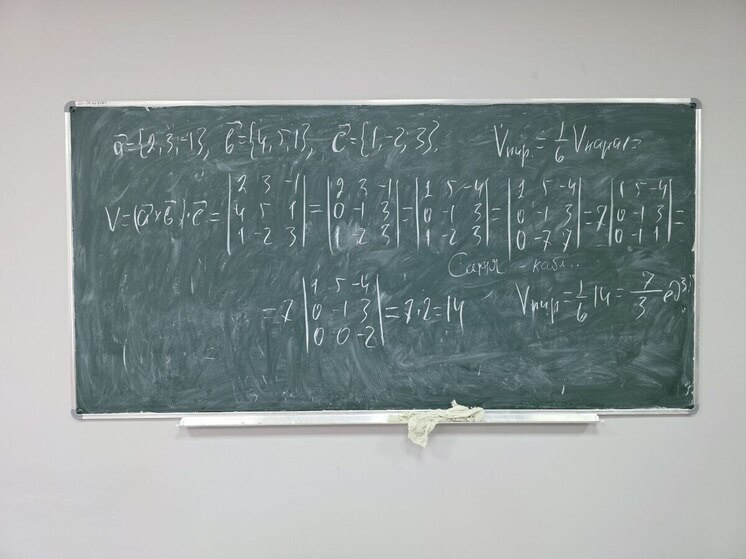 a⃗={2,3,-1}, b⃗={4,5,1}, c⃗={1,-2,3}. Vпир.=1/6 Vпарал=
V=(a⃗×b⃗)·c⃗= |2 3 -1; 4 5 1; 1 -2 3| = |2 3 -1; 0 -1 3; 1 -2 3| = |1 5 -4; 0 -1 3; 1 -2 3| = |1 5 -4; 0 -1 3; 0 -7 7| = 7 |1 5 -4; 0 -1 3; 0 -1 1| =
=7 |1 5 -4; 0 -1 3; 0 0 -2| = 7·2=14 Vпир=1/6 14= 7/3 ед³